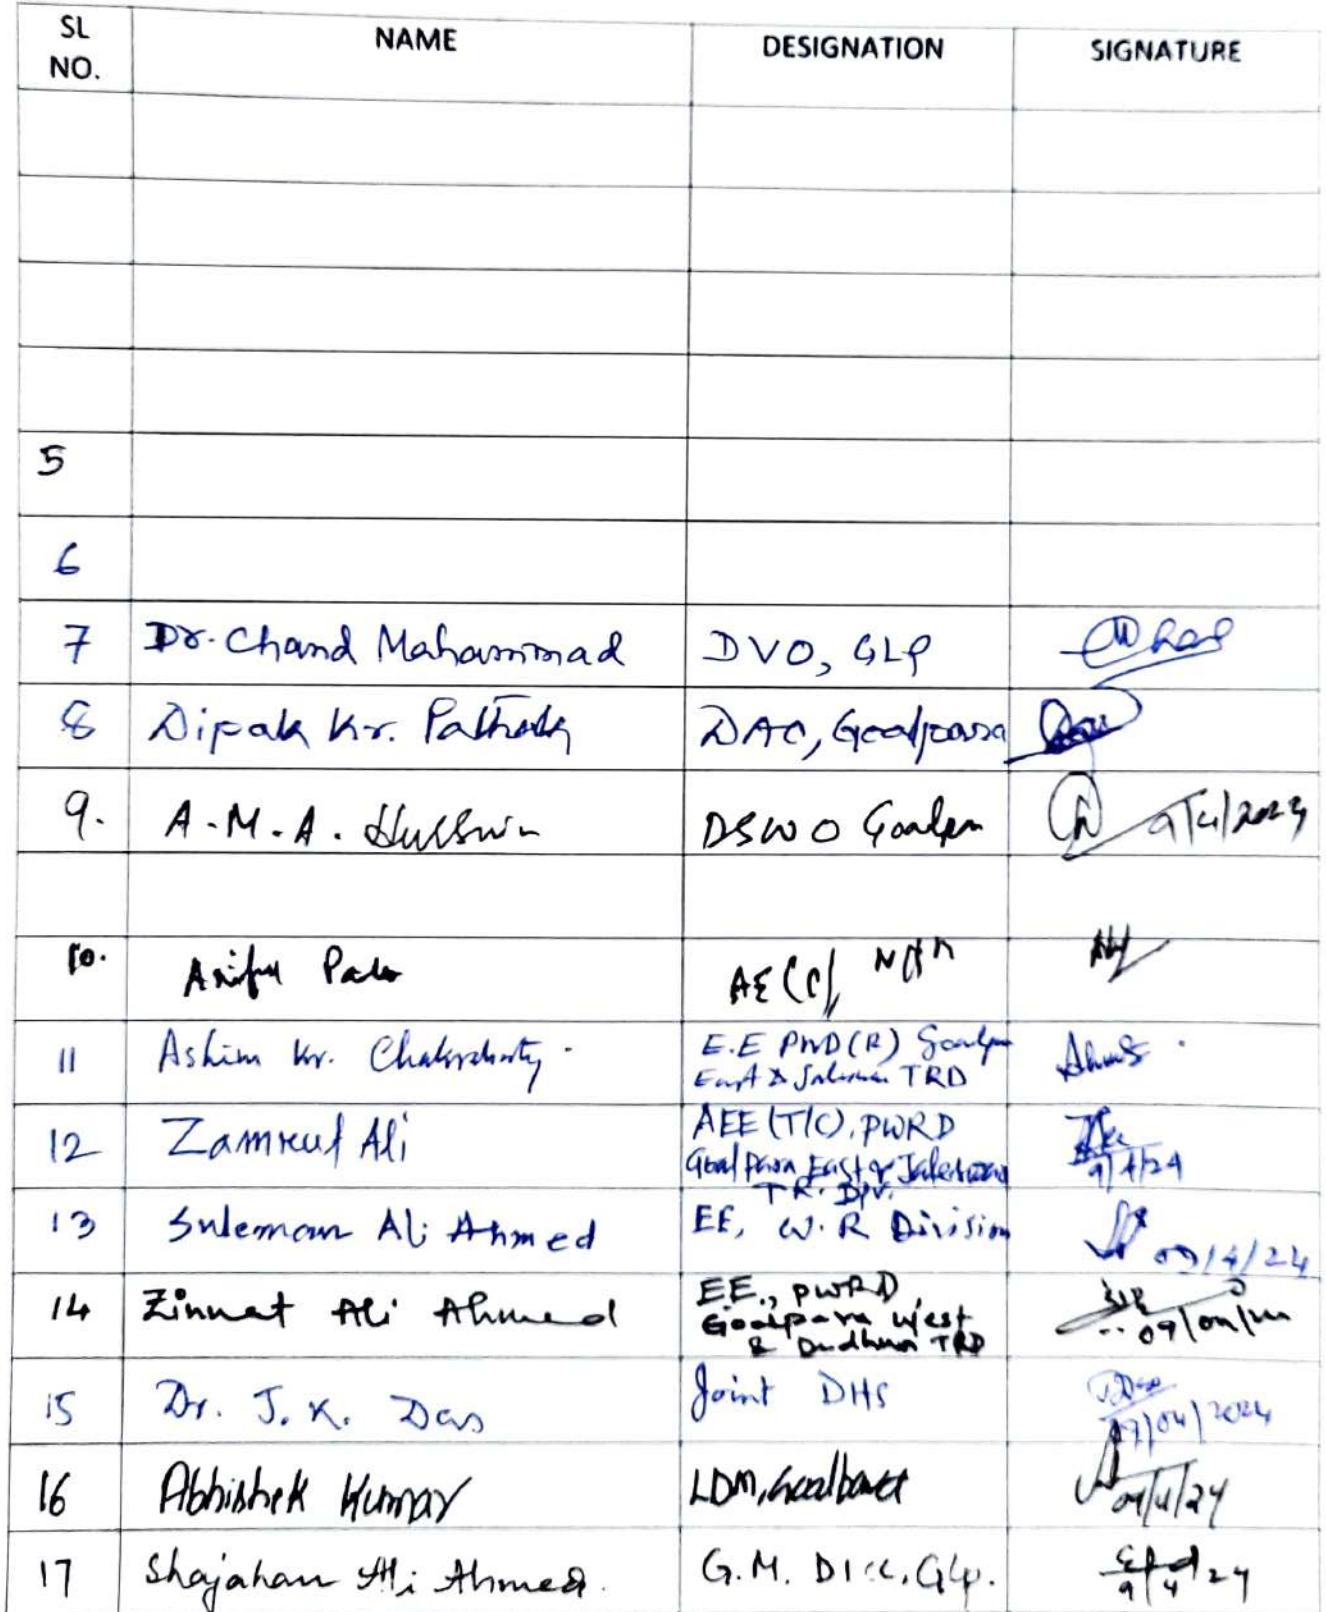 SL NO.
NAME
DESIGNATION
SIGNATURE
5
6
7 Dr. Chand Mahammad DVO, GLP
8 Dipak Kr. Pathak DAO, Goalpara
9. A.M.A. Hussain DSWO Goalpara 9/4/2024
10. AE(C),
11 Ashim Kr. Chakraborty E.E PWD(R) Goalpara
East & Jaleswar TRD
12 Zamrul Ali AEE (T/C), PWRD
Goalpara East & Jaleswar 9/4/24
TR. Div.
13 Suleman Ali Ahmed EE, W.R Division 09/4/24
14 Zinnat Ali Ahmed EE., PWRD
Goalpara West
& Dudhnoi TRD
15 Dr. J. K. Das Joint DHS /04/2024
16 Abhishek Kumar LDM, Goalpara 09/4/24
17 Shajahan Ali Ahmed. G.M. DICC, Glp. 9/4/24